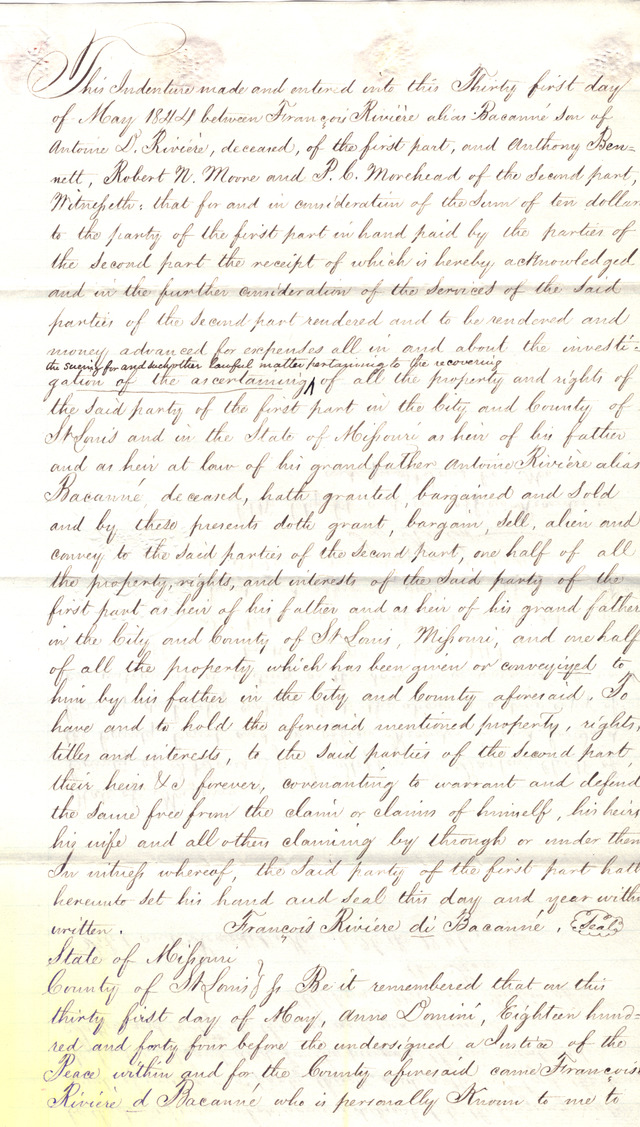 This Indenture made and entered into this Thirty first day
of May 1844 between François Rivière alias Bacanné son of
Antoine L. Rivière, deceased, of the first part, and Anthony Ben=
nett, Robert N. Moore and P. C. Morehead of the second part,
Witnesseth: that for and in consideration of the sum of ten dollar
to the party of the first part in hand paid by the parties of
the second part the receipt of which is hereby acknowledged
and in the further consideration of the services of the said
parties of the second part rendered and to be rendered and
money advanced for expenses all in and about the investi=
the sueing for and such other lawful matter pertaining to the recovering
gation of the ascertaining ^ of all the property and rights of
the said party of the first part in the City and County of
St Louis and in the State of Missouri as heir of his father
and as heir at law of his grandfather Antoine Rivière alias
Bacanné, deceased, hath granted, bargained and sold
and by these presents doth grant, bargain, sell, alien and
convey to the said parties of the second part, one half of all
the property, rights, and interests of the said party of the
first part as heir of his father and as heir of his grand father
in the City and County of St Louis, Missouri, and one half
of all the property which has been given or conveyiyed to
him by his father in the City and County aforesaid. To
have and to hold the aforesaid mentioned property, rights,
titles and interests, to the said parties of the second part,
their heirs &c forever, covenanting to warrant and defend
the same free from the claim or claims of himself, his heirs
his wife and all others claiming by through or under them
In witness whereof, the said party of the first part hath
hereunto set his hand and seal this day and year within
written. François Rivière di Bacanné. Seal
State of Missouri
County of St Louis } Ss Be it remembered that on this
thirty first day of May, Anno Domini, Eighteen hund=
red and forty four before the undersigned a Justice of the
Peace within and for the County aforesaid came François
Rivière d Bacanné who is personally Known to me to